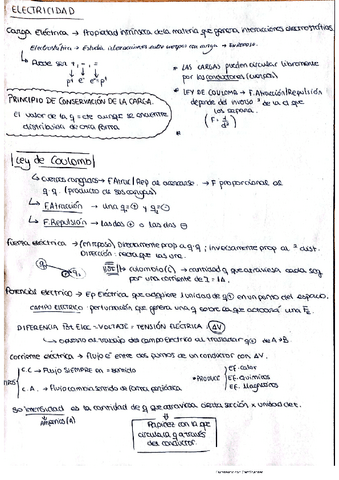 ELECTRICIDAD
Carga Eléctrica → Propiedad intrínseca de la materia que genera interacciones electrostáticas.
Electrostática → Estudia interacciones entre cuerpos con carga →
Puede ser +, =, -
p+ e- n
• LAS CARGAS pueden circular libremente
por los conductores (cuerpos)
• LEY DE COULOMB → F. Atracción/Repulsión
depende del inverso ² de la d que
los separa.
(F = 1/d²)
PRINCIPIO DE CONSERVACIÓN DE LA CARGA.
el valor de la q = cte aunque se encuentre
distribuida de otra forma
Ley de Coulomb
↳ cuerpos cargados → F Atrac/Rep al acercarse. → F proporcional al
q·q (producto de sus cargas)
↳ F. Atracción → una q + y q -
↳ F. Repulsión → las dos + o las dos -
Fuerza eléctrica → (en reposo) Directamente prop a q·q; inversamente prop al ² dist.
Dirección: recta que las une.
culombio (C) → cantidad q que atraviesa cada seg
por una corriente de I = 1A.
Potencial eléctrico → Ep Eléctrica que adquiere 1 unidad de q + en un punto del espacio.
CAMPO ELÉCTRICO: perturbación que genera una q sobre la que actúa una FE
DIFERENCIA Pot Elec → VOLTAJE = TENSIÓN ELÉCTRICA (ΔV)
↳ al trabajo del campo eléctrico al trasladar q de A → B.
Corriente eléctrica → Flujo e- entre dos puntos de un conductor con ΔV.
C.C → Flujo SIEMPRE en = sentido
C.A. → Flujo cambia sentido de forma periódica
• PRODUCE
EF. calor
EF. Químicos
EF. Magnéticos
Su intensidad es la cantidad de q que atraviesa cierta sección x unidad de t.
Amperios (A)
Rapidez con la que
circula q a través
del conductor.